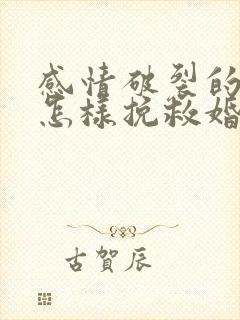 感情破裂的
怎样挽救婚
古賀辰